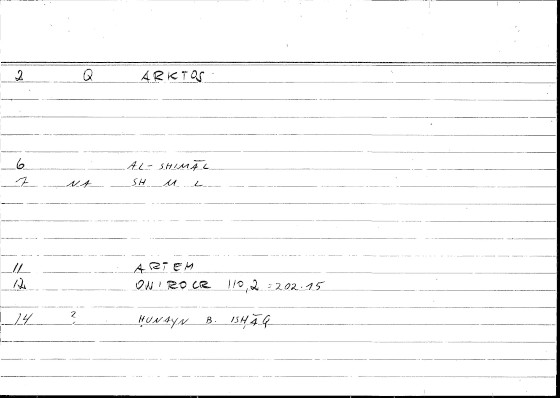 2 Q ARKTOS
6 AL-SHIMĀL
7 NA SH M L
11 ARTEM
12 ONIROCR 110,2 = 202.15
14 ? ḤUNAYN B. ISḤĀQ